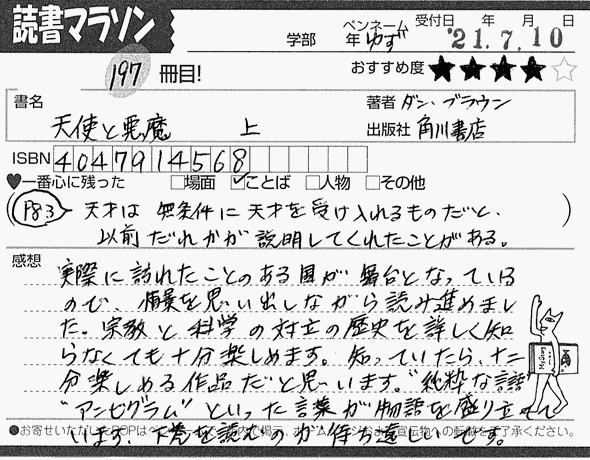 読書マラソン
ペンネーム 受付日 年 月 日
学部 年 ゆず '21.7.10
197 冊目! おすすめ度 ★★★★☆
書名 著者 ダン・ブラウン
天使と悪魔 上 出版社 角川書店
ISBN 4047914568
♥一番心に残った □場面 ☑ことば □人物 □その他
(P83) 天才は 無条件に天才を受け入れるものだと、
以前だれかが説明してくれたことがある。
感想
実際に訪れたことのある国が舞台となっている
ので、情景を思い出しながら読み進めまし
た。宗教と科学の対立の歴史を詳しく知
らなくても十分楽しめます。知っていたら、十二
分楽しめる作品だと思います。"純粋な言語"
"アンビグラム"といった言葉が物語を盛り立
います、下巻を読むのが待ち遠しいです。
●お寄せいただいたPOPは 内で掲示、ホーム 宣伝物への転載をご了承ください。